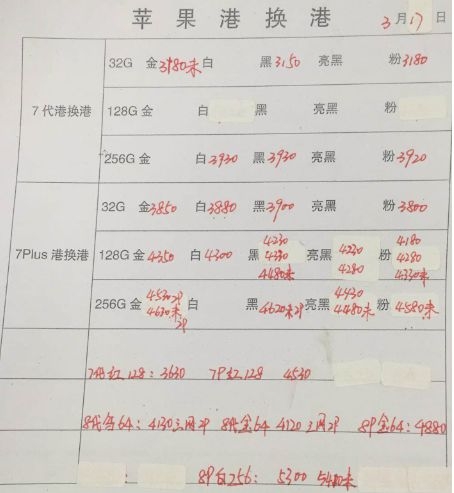 苹果港换港 3月17日
32G 金3980未 白 黑3150 亮黑 粉3180
7代港换港 128G 金 白 黑 亮黑 粉
256G 金 白3930 黑3930 亮黑 粉3920
32G 金3850 白3880 黑3900 亮黑 粉3800
4230 4230 4180
7Plus 港换港 128G 金4350 白4300 黑4390 亮黑 4280 粉4280
4480未 4330未
4530 2P 4430
256G 金4630未 白 黑4620未2P 亮黑4480未 粉4580未
2P
7代红128：3630 7P红128 4530
64：4130三网2P 8代金64 4120三网2P 8P金64：4880
8P白256： 5300 5400未